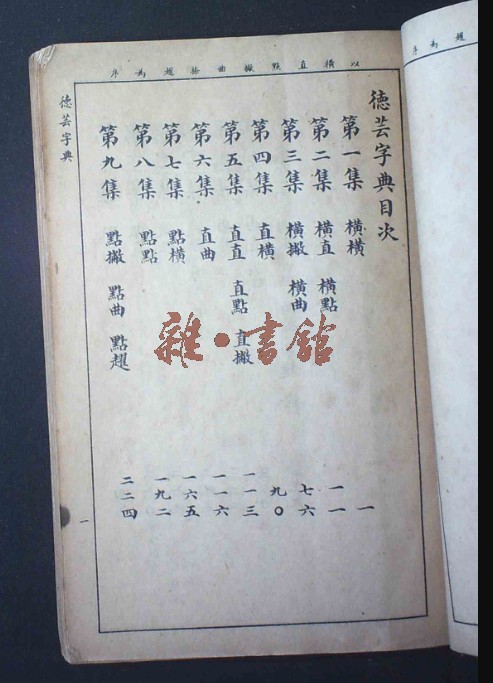 趯為序
以橫直點撇曲捺趯為序
德芸字典目次
第一集 橫橫 一
第二集 橫直 橫點 一一
第三集 橫撇 橫曲 七六
第四集 直橫 九〇
第五集 直直 直點 直撇 一一三
第六集 直曲 一一六
第七集 點橫 一六五
第八集 點點 一九二
第九集 點撇 點曲 點趯 二二四
德芸字典 一
雜·書舘